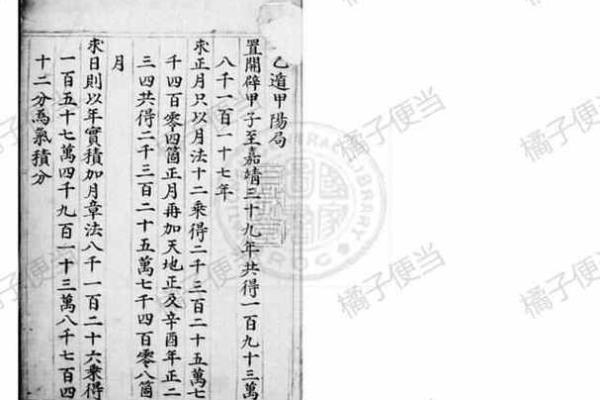 乙遁甲陽局
置開辟甲子至嘉靖三十九年共得一百九十三萬
八千一百一十七年
求正月只以月法十二乘得二千三百二十五萬七
千四百零四箇正月再加天地正及辛酉年正二
三四共得二千三百二十五萬七千四百零八箇
月
求日則以年實積加月章法八千一百二十六乘得
一百五十七萬四千九百一十三萬八千七百四
十二分為氣積分
橘子便当
橘子便当
橘子便当
橘子便当